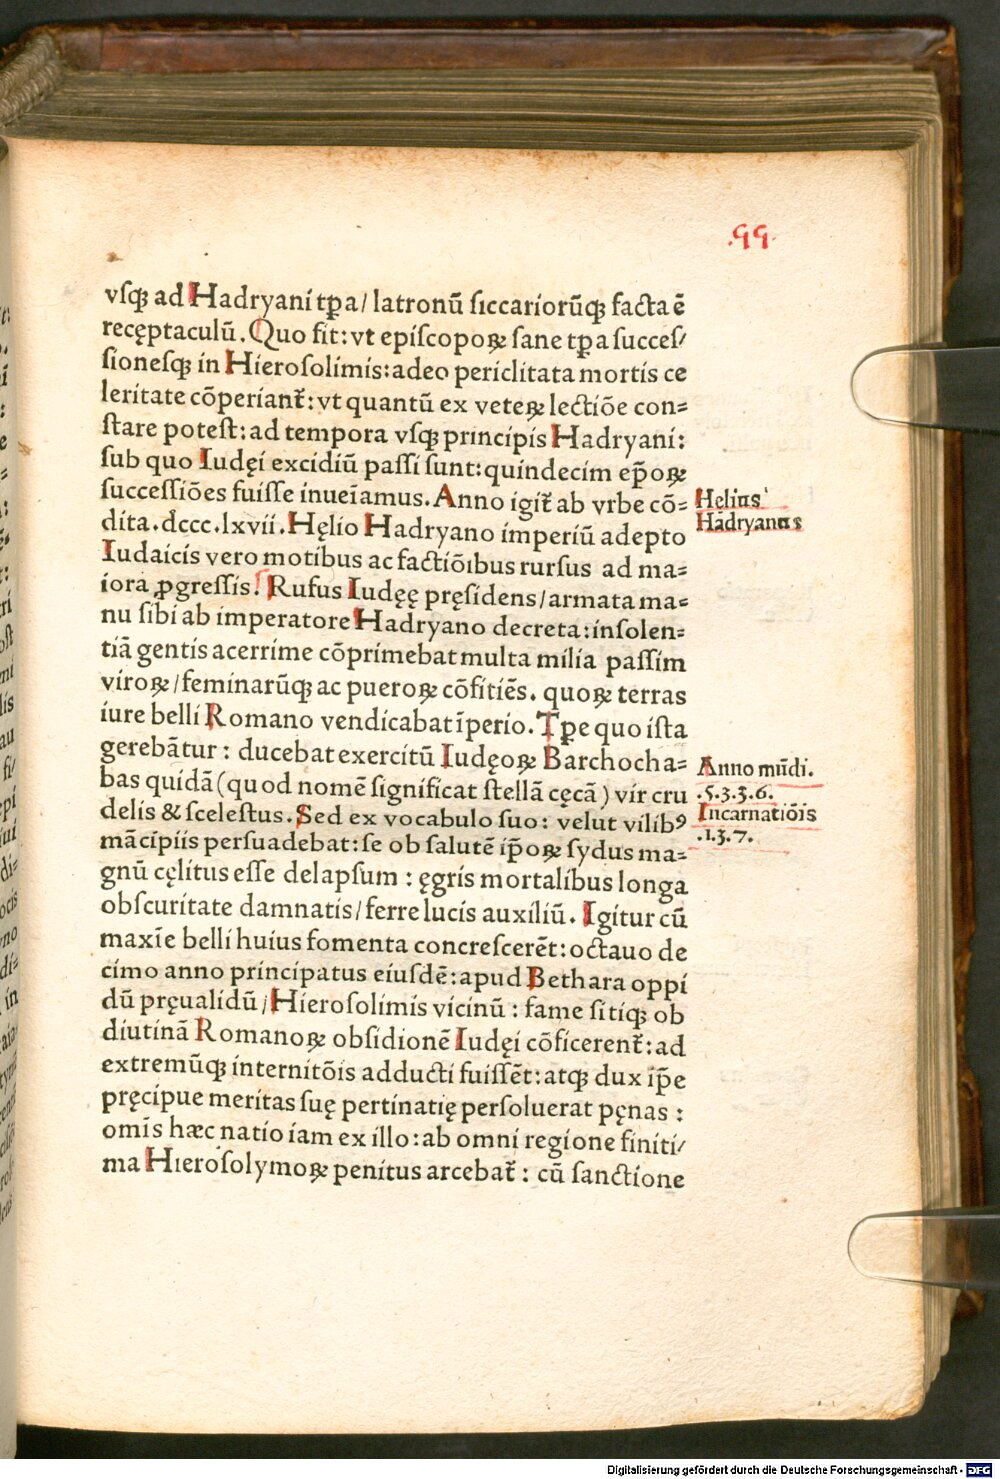 .99.
vſqꝫ ad Hadryani tꝑa/ latronū ſiccariorūqꝫ facta ē
recęptaculū. Quo fit: vt epiſcopoꝝ ſane tꝑa ſucceſ/
ſionesqꝫ in Hieroſolimis: adeo periclitata mortis ce
leritate cōperiant᷑: vt quantū ex veteꝝ lectiōe con⸗
ſtare poteſt: ad tempora vſqꝫ principis Hadryani:
ſub quo Iudęi excidiū paſſi ſunt: quindecim ep̄oꝝ
ſucceſſiōes fuiſſe inueīamus. Anno igit᷑ ab vrbe cō⸗
dita. dccc. lxvii. Hęlio Hadryano imperiū adepto
Iudaicis vero motibus ac factiōibus rurſus ad ma⸗
iora ꝓgreſſis. Rufus Iudęę pręſidens/ armata ma⸗
nu ſibi ab imperatore Hadryano decreta: inſolen⸗
tiā gentis acerrime cōprimebat multa milia paſſim
viroꝝ/ feminarūqꝫ ac pueroꝝ cōfitiēs. quoꝝ terras
iure belli Romano vendicabat īperio. Tꝑe quo iſta
gerebātur : ducebat exercitū Iudęoꝝ Barchocha⸗
bas quidā (quod nomē ſignificat ſtellā cęcā) vir cru
delis & ſceleſtus. Sed ex vocabulo ſuo: velut vilibꝰ
mācipiis perſuadebat: ſe ob ſalutē ip̄oꝝ ſydus ma⸗
gnū cęlitus eſſe delapſum : ęgris mortalibus longa
obſcuritate damnatis/ ferre lucis auxiliū. Igitur cū
maxīe belli huius fomenta concreſcerēt: octauo de
cimo anno principatus eiuſdē: apud Bethara oppi
dū pręualidū/ Hieroſolimis vicinū : fame ſitiqꝫ ob
diutinā Romanoꝝ obſidionē Iudęi cōficerent᷑: ad
extremūqꝫ internitōis adducti fuiſſēt: atqꝫ dux ip̄e
pręcipue meritas ſuę pertinatię perſoluerat pęnas :
omīs hæc natio iam ex illo: ab omni regione finiti/
ma Hieroſolymoꝝ penitus arcebat᷑ : cū ſanctione
Helius
Hadryanus
Anno mūdi.
.5.3.3.6.
Incarnatiōis
.1.3.7.
Digitalisierung gefördert durch die Deutsche Forschungsgemeinschaft - DFG